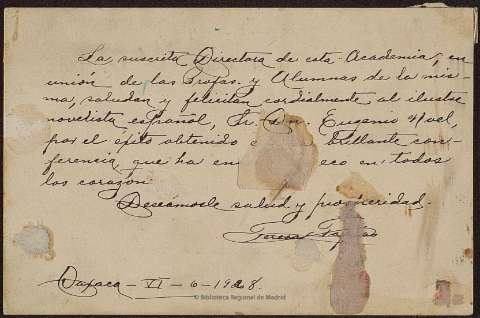 La suscrita Directora de esta Academia, en
unión de las Profas. y Alumnas de la mis-
ma, saludan y felicitan cordialmente al ilustre
novelista español, Sr. Dn. Eugenio Noel,
por el éxito obtenido brillante con-
ferencia, que ha en eco en todos
los corazon
Deseámosle salud y prosperidad.
Teresa
Oaxaca - VI - 6 - 1928.
© Biblioteca Regional de Madrid